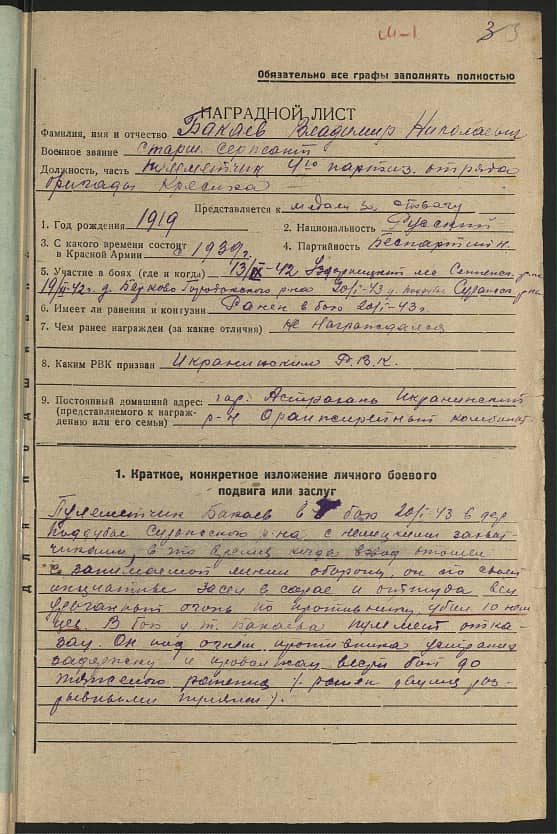 М-1
3
Обязательно все графы заполнять полностью
НАГРАДНОЙ ЛИСТ
Фамилия, имя и отчество Бакаев Владимир Николаевич
Военное звание старш. сержант
Должность, часть пулеметчик 4го партиз. отряда
бригады
Представляется к медали За Отвагу
1. Год рождения 1919 2. Национальность Русский
3. С какого времени состоит
в Красной Армии с 1939 г. 4. Партийность Беспартийн.
5. Участие в боях (где и когда)
р-на 20/I-43 г.
6. Имеет ли ранения и контузии Ранен в бою 20/I-43 г.
7. Чем ранее награжден (за какие отличия) не награждался
8. Каким РВК призван Р.В.К.
9. Постоянный домашний адрес: гор. Астрахань
(представляемого к награж-
дению или его семьи) р-н Оранжерейный комбинат
1. Краткое, конкретное изложение личного боевого
подвига или заслуг
Пулеметчик Бакаев в бою 20/I-43 в дер
Поддубье р-на с немецкими захват-
чиками, в то время когда взвод отошел
с занимаемой линии обороны, он по своей
инициативе засел в сарае и оттуда вел
ураганный огонь по противнику, убил 10 нем
цев. В бою у т. Бакаева пулемет отка-
зал. Он под огнем противника устранил
задержку и продолжал вести бой до
тяжелого ранения (ранен двумя раз-
рывными пулями).